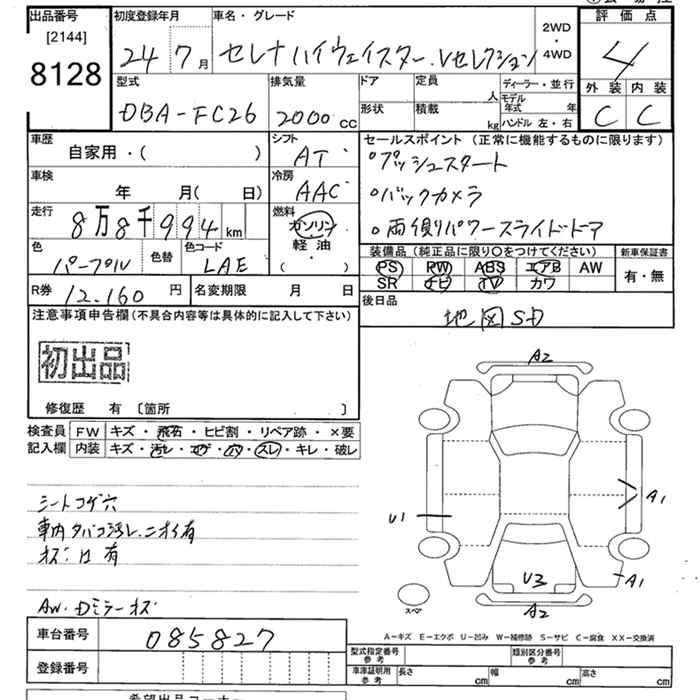 出品番号
[2144]
8128
初度登録年月
24 7月
車名・グレード
セレナ ハイウェイスター.Vセレクション
2WD
・
4WD
評価点
4
外装 内装
C C
型式
DBA-FC26
排気量
2000 CC
ドア
形状
定員
人
積載
kg
ディーラー・並行
モデル年式 年
ハンドル 左・右
車歴
自家用・( )
シフト
AT
車検
年 月( 日)
冷房
AAC
走行
8万8千994 km
燃料
ガソリン
軽油
( )
色
パープル
色替
色コード
LAE
R券
12.160 円
名変期限 月 日
セールスポイント (正常に機能するものに限ります)
○プッシュスタート
○バックカメラ
○両側パワースライドドア
装備品 (純正品に限り○をつけてください)
PS PW ABS エアB AW
SR ナビ TV カワ
新車保証書
有・無
後日品
地図SD
注意事項申告欄(不具合内容等は具体的に記入して下さい)
初出品
修復歴 有 [箇所 ]
検査員記入欄
FW キズ・飛石・ヒビ割・リペア跡・×要
内装 キズ・汚レ・コゲ・穴・スレ・キレ・破レ
シートコゲ穴
車内タバコ汚レ.ニオイ有
ネジ穴有
AW.Dミラーキズ
A2
U1
A1
A1
U3
A2
スペア
A-キズ E-エクボ U-凹み W-補修跡 S-サビ C-腐食 XX-交換済
車台番号
085827
登録番号
型式指定番号
参考
類別区分番号
参考
車庫証明用
参考
長さ cm
幅 cm
高さ cm